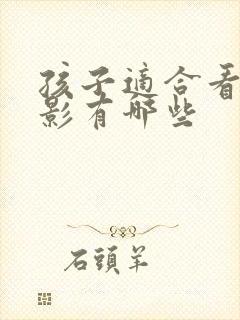 孩子適合看
影有哪些
石頭羊